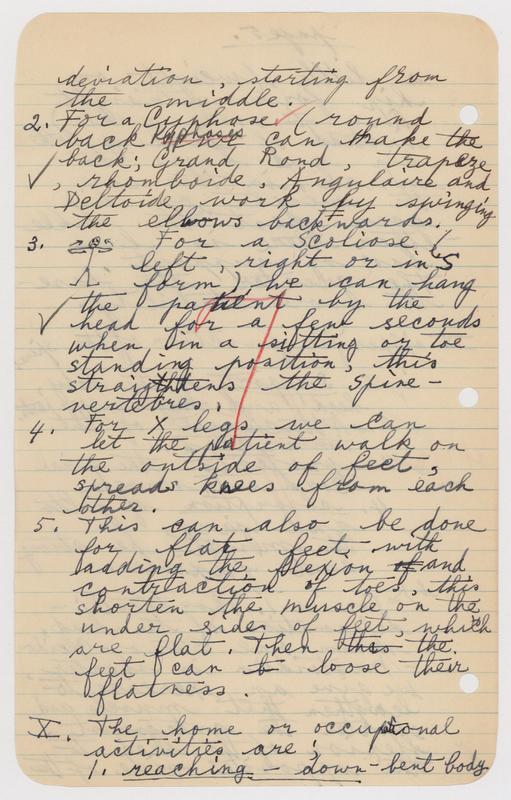 deviation, starting from
the middle.
2. For a Cyphose (round
back Kyphoses we can make the
back; Grand Rond, trapeze
, rhomboide, Angulaire and
Deltoide, work by swinging
the elbows backwards.
3. For a Scoliose (
left, right or in S
form) we can hang
the patient by the
head for a few seconds
when in a sitting or toe
standing position, this
straightens the spine-
vertebres.
4. For X legs we can
let the patient walk on
the outside of feet,
spreads knees from each
other.
5. This can also be done
for flat feet with
adding the flexion of and
contraction of toes, this
shorten the muscle on the
under side of feet, which
are flat. Then this the
feet can to loose their
flatness.
X. The home or occupational
activities are;
1. reaching - down-bent body